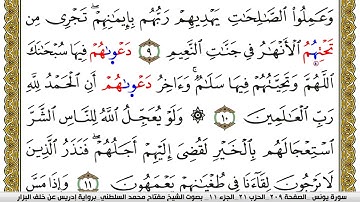 وَعَمِلُواْ الصَّـٰلِحَـٰتِ يَهْدِيهِمْ رَبُّهُم بِإِيمَـٰنِهِمْ تَجْرِى مِن
تَحْتِهُمُ الْأَنْهَـٰرُ فِى جَنَّـٰتِ النَّعِيمِ ٩ دَعْوَىٰهُمْ فِيهَا سُبْحَـٰنَكَ
اللَّهُمَّ وَتَحِيَّتُهُمْ فِيهَا سَلَـٰمٌ وَءَاخِرُ دَعْوَىٰهُمْ أَنِ الْحَمْدُ لِلَّهِ
رَبِّ الْعَـٰلَمِينَ ١٠ ۞ وَلَوْ يُعَجِّلُ اللَّهُ لِلنَّاسِ الشَّرَّ
اسْتِعْجَالَهُم بِالْخَيْرِ لَقُضِىَ إِلَيْهِمْ أَجَلُهُمْ فَنَذَرُ الَّذِينَ
لَا يَرْجُونَ لِقَآءَنَا فِى طُغْيَـٰنِهِمْ يَعْمَهُونَ ١١ وَإِذَا مَسَّ
سورة يونس الصفحة ٢٠٩ الحزب ٢١ الجزء ١١ بصوت الشيخ مفتاح محمد السلطني برواية إدريس عن خلف البزار